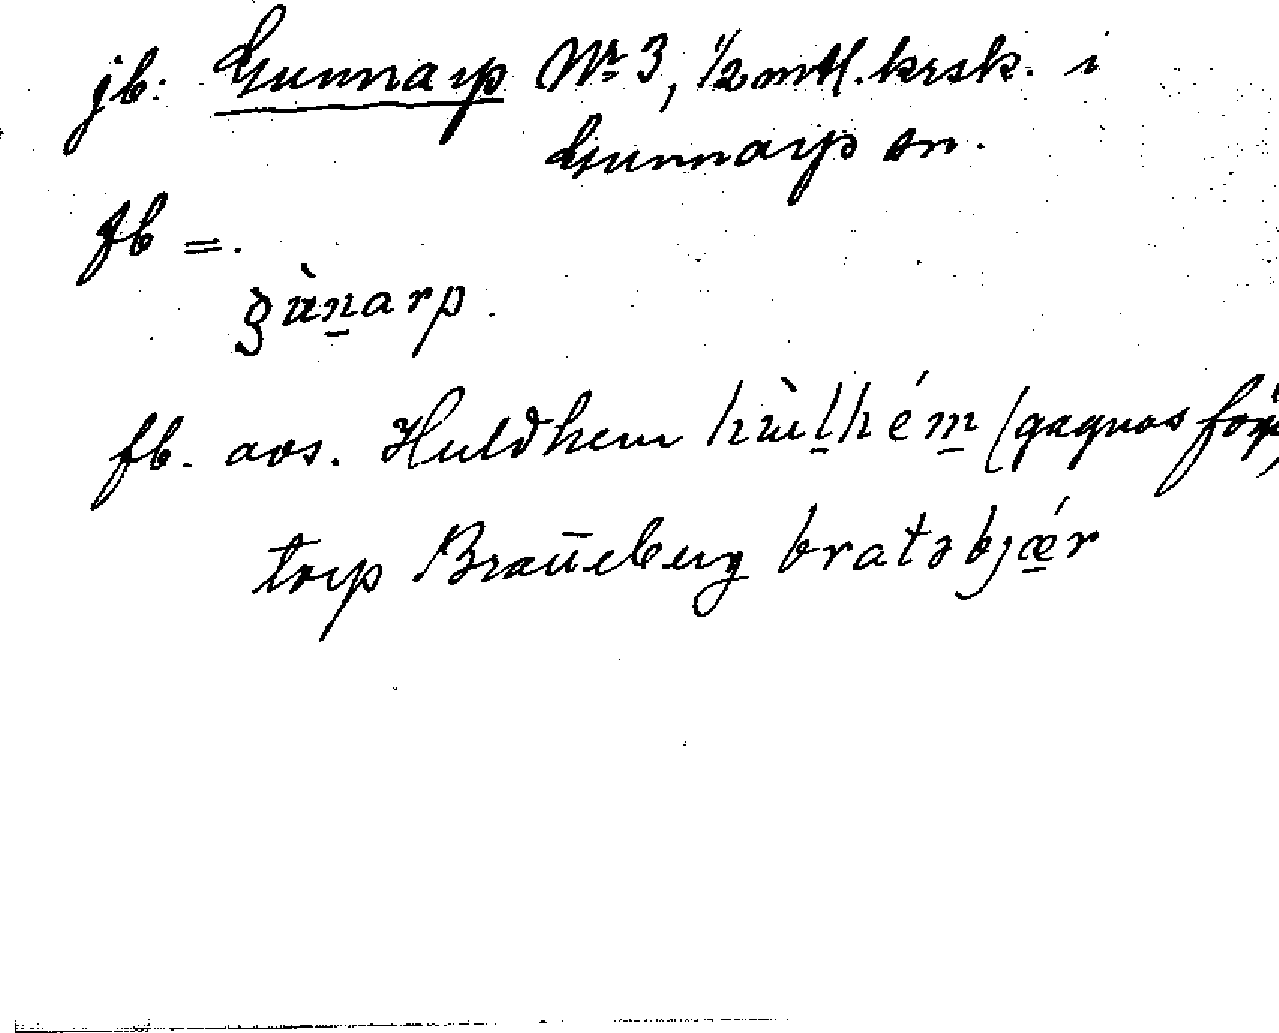 jb: Gunnarp Nr 3, 1/2 mtl. krsk. i
Gunnarp sn.
fb =.
gùnarp.
fb. avs. Huldhem hùlhém (gagnas föga)
torp Bratteberg bratəbjǽr